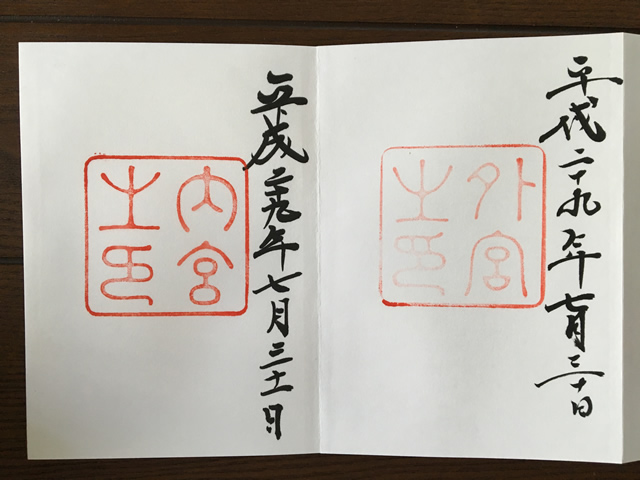 平成二十九年七月三十日
外宮
之印
平成二十九年七月三十一日
内宮
之印